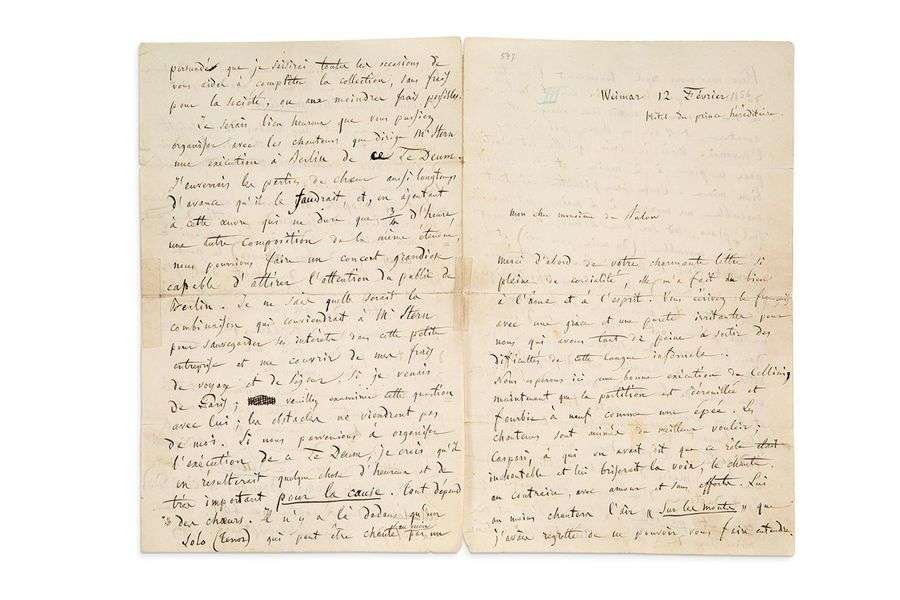 597
Weimar 12 Février
Hôtel du prince héréditaire.
mon cher monsieur de Bulow
merci d'abord de votre charmante lettre si
pleine de cordialité, elle m'a fait du bien
à l'ame et à l'esprit. Vous écrivez le français
avec une grâce et une pureté irritantes pour
nous qui avons tant de peine à sortir des
difficultés de cette langue infernale.
Nous espérons ici une bonne exécution de Cellini,
maintenant que la partition est dérouillée et
fourbie à neuf comme une épée. Les
chanteurs sont animés du meilleur vouloir;
Caspari, à qui on avait dit que ce rôle était
inchantable et lui briserait la voix, le chante
au contraire, avec amour et sans efforts. Lui
au moins chantera l'air « Sur les monts » que
j'avais regretté de ne pouvoir vous faire entendre.
persuadé que je saisirai toutes les occasions de
vous aider à compléter la collection, sans frais
pour la société, ou aux moindres frais possibles.
Je serais bien heureux que vous puissiez
organiser avec les chanteurs que dirige Mr Stern
une exécution à Berlin de ce Te Deum.
J'enverrais les parties de chœur aussi longtemps
d'avance qu'il le faudrait, et, en ajoutant
à cette œuvre qui ne dure que 3/4 d'heure,
une autre composition de la même étendue,
nous pourrions faire un concert grandiose
capable d'attirer l'attention du public de
Berlin. Je ne sais quelle serait la
combinaison qui conviendrait à Mr Stern
pour sauvegarder ses intérêts dans cette petite
entreprise et me couvrir de mes frais
de voyage et de séjour, si je venais
de Paris; veuillez examiner cette question
avec lui; les obstacles ne viendront pas
de moi. Si nous parvenions à organiser
l'exécution de ce Te Deum, je crois qu'il
en résulterait quelque chose d'heureux et de
très important pour la cause. Tout dépend
des chœurs. Il n'y a là dedans qu'un
Solo (Tenor) qui peut être chanté au moins par un